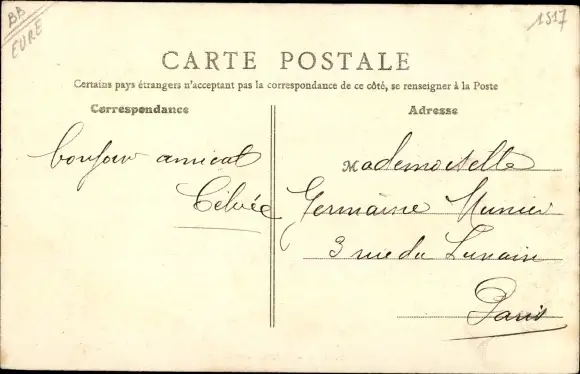 BB
EURE
1517
CARTE POSTALE
Certains pays étrangers n'acceptent pas la correspondance de ce côté, se renseigner à la Poste
Correspondance
Adresse
bonjour amical
Mademoiselle
Germaine Munier
3 rue du Lunain
Paris